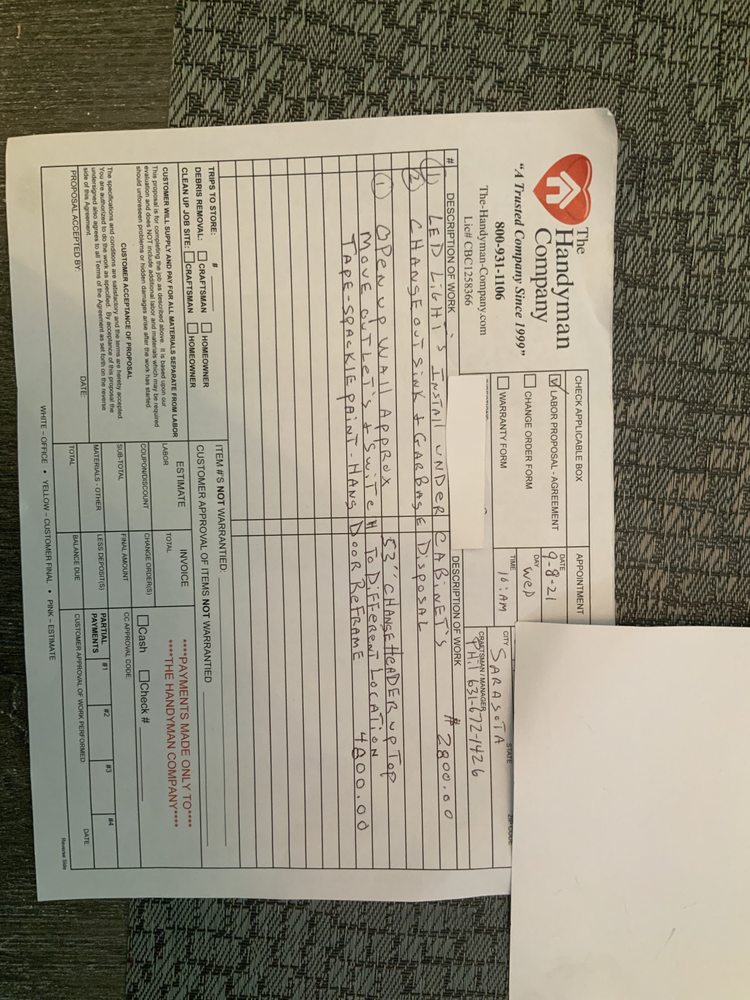 The
Handyman
Company
"A Trusted Company Since 1999"
800-931-1106
The-Handyman-Company.com
Lic# CBC1258366
CHECK APPLICABLE BOX
LABOR PROPOSAL - AGREEMENT
CHANGE ORDER FORM
WARRANTY FORM
APPOINTMENT
DATE
9-8-21
DAY
WED
TIME
10:AM
CITY
SARASOTA
STATE
ZIP CODE
CRAFTSMAN / MANAGER
PHIL 631-672-1426
# DESCRIPTION OF WORK DESCRIPTION OF WORK
1 LED LIGHT'S INSTALL UNDER CABINET'S # 2800.00
2 CHANGE OUT SINK & GARBAGE DISPOSAL
1 OPEN UP WALL APPROX 53" CHANGE HEADER UP TOP
MOVE OUTLET'S & SWITCH TO DIFFERENT LOCATION
TAPE-SPACKLE PAINT-HANG DOOR REFRAME 4800.00
TRIPS TO STORE: #
DEBRIS REMOVAL: CRAFTSMAN HOMEOWNER
CLEAN UP JOB SITE: CRAFTSMAN HOMEOWNER
CUSTOMER WILL SUPPLY AND PAY FOR ALL MATERIALS SEPARATE FROM LABOR
This proposal is for completing the job as described above. It is based upon our
evaluation and does NOT include additional labor and materials which may be required
should unforeseen problems or hidden damages arise after the work has started.
CUSTOMER ACCEPTANCE OF PROPOSAL
The specifications and conditions are satisfactory and the terms are hereby accepted.
You are authorized to do the work as specified. By acceptance of this proposal the
undersigned also agrees to all Terms of the Agreement as set forth on the reverse
side of this Agreement.
PROPOSAL ACCEPTED BY: DATE:
ITEM #'S NOT WARRANTIED:
CUSTOMER APPROVAL OF ITEMS NOT WARRANTIED
ESTIMATE INVOICE ****PAYMENTS MADE ONLY TO****
****THE HANDYMAN COMPANY****
LABOR TOTAL
COUPON/DISCOUNT CHANGE ORDER(S) Cash Check #
SUB-TOTAL FINAL AMOUNT CC APPROVAL CODE:
MATERIALS - OTHER LESS DEPOSIT(S) PARTIAL PAYMENTS #1 #2 #3 #4
TOTAL BALANCE DUE CUSTOMER APPROVAL OF WORK PERFORMED: DATE
WHITE – OFFICE • YELLOW – CUSTOMER FINAL • PINK – ESTIMATE
Reverse Side